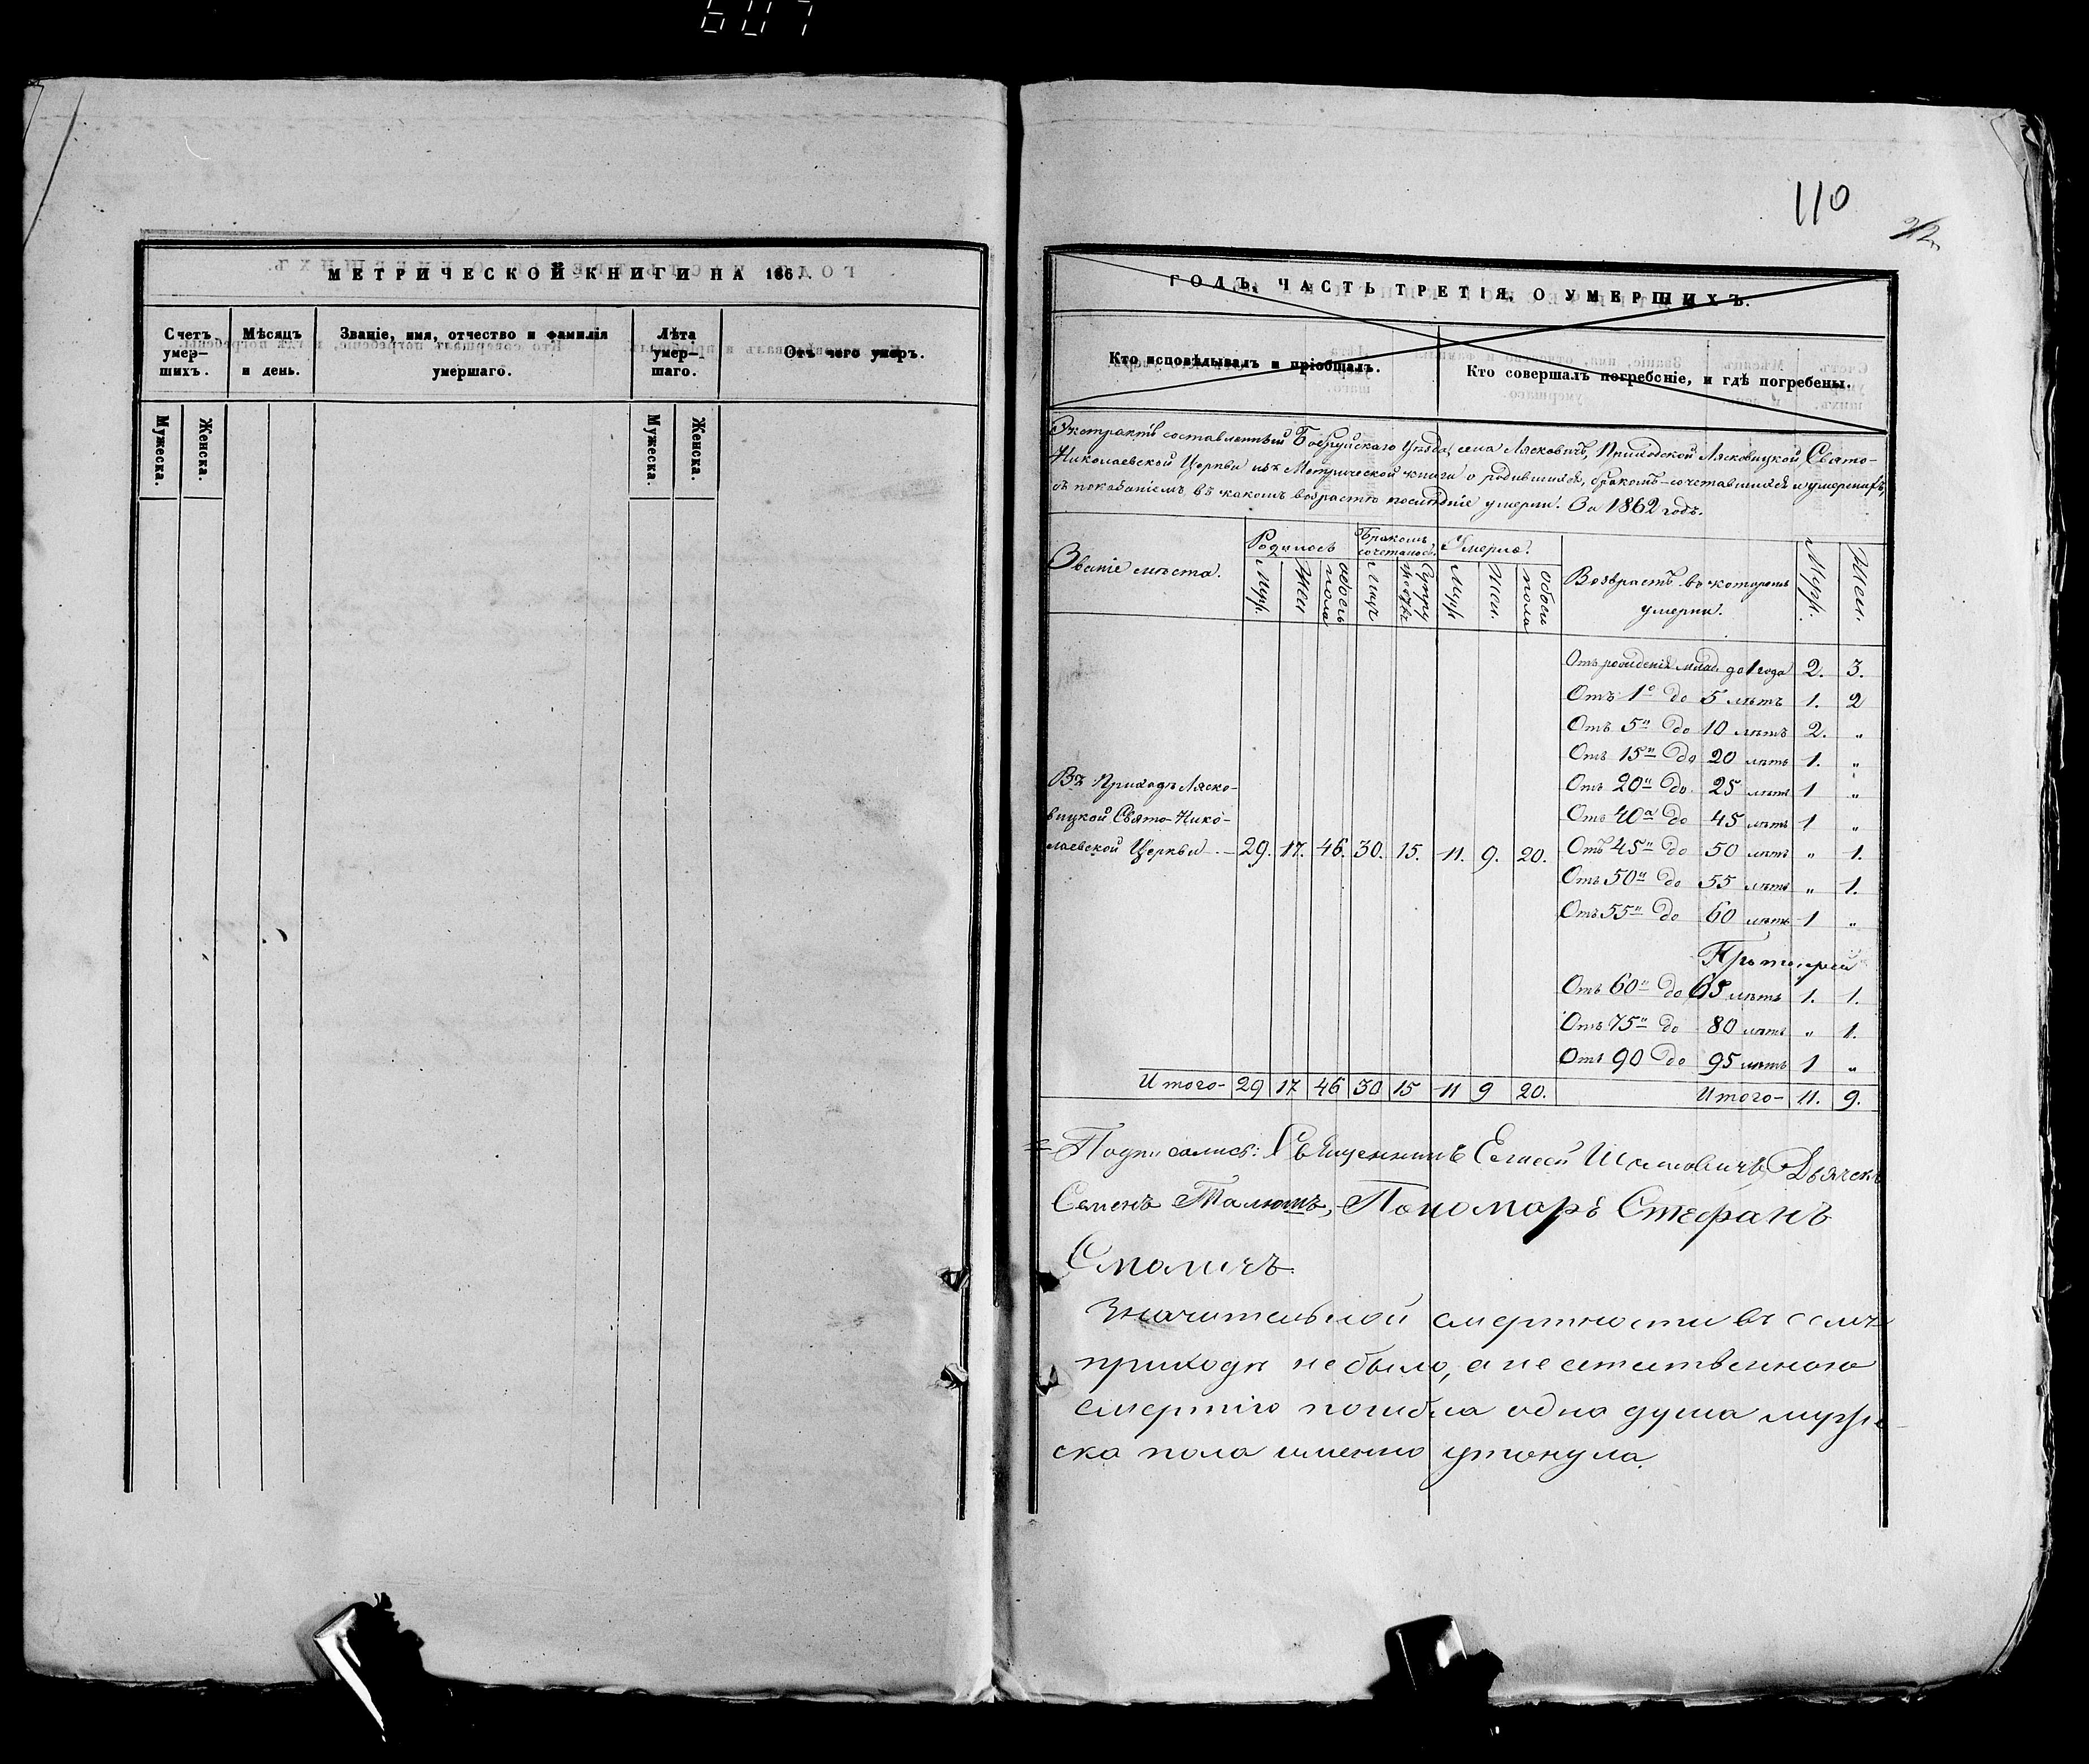 607
МЕТРИЧЕСКОЙ КНИГИ НА 186 .
Счетъ умер– шихъ. Мѣсяцъ и день. Званіе, имя, отчество и фамилія умершаго. Лѣта умер– шаго. Отъ чего умеръ.
Мужеска. Женска. Мужеска. Женска.
110
ГОДЪ, ЧАСТЬ ТРЕТІЯ, О УМЕРШИХЪ.
Кто исповѣдывалъ и пріобщалъ. Кто совершалъ погребеніе, и гдѣ погребены.
Экстрактъ составленный Бобруйскаго Уѣзда, села Лясковичъ, Приходской Лясковицкой Свято-
Николаевской Церкви изъ Метрической книги о родившихся, бракомъ-сочетавшихся и умершихъ,
съ показаніемъ, въ какомъ возрастѣ послѣдніе умерли. За 1862 годъ.
Званіе мѣста. Родилось Бракомъ сочеталось. Умерло. Возврастъ въ которомъ умерли. Муж. Жен.
Муж. Жен. обоего пола Лицъ Супружествъ Муж. Жен. обоего пола
Отъ рожденія млад. до 1 года 2. 3.
Отъ 1º до 5 лѣтъ 1. 2
Отъ 5и до 10 лѣтъ 2. "
Отъ 15и до 20 лѣтъ 1. "
Въ Приходѣ Ляско-
Отъ 20и до 25 лѣтъ 1 "
вицкой Свято-Нико-
Отъ 40а до 45 лѣтъ 1 "
лаевской Церкви.– 29. 17. 46. 30. 15. 11. 9. 20. Отъ 45и до 50 лѣтъ " 1.
Отъ 50и до 55 лѣтъ " 1.
Отъ 55и до 60 лѣтъ 1 "
Протоіерей
Отъ 60и до 65 лѣтъ 1. 1.
Отъ 75и до 80 лѣтъ " 1.
Отъ 90 до 95 лѣтъ 1 "
Итого– 29 17 46 30 15 11 9 20. Итого– 11. 9.
Подписались: Священникъ Елисей Дьячекъ
Семенъ Талютъ, Пономарь Стефанъ
Смоличъ.
Значительной смертности въ семъ
приходѣ не было, а неестественною
смертію погибла одна душа муже-
ска пола именно утонула.